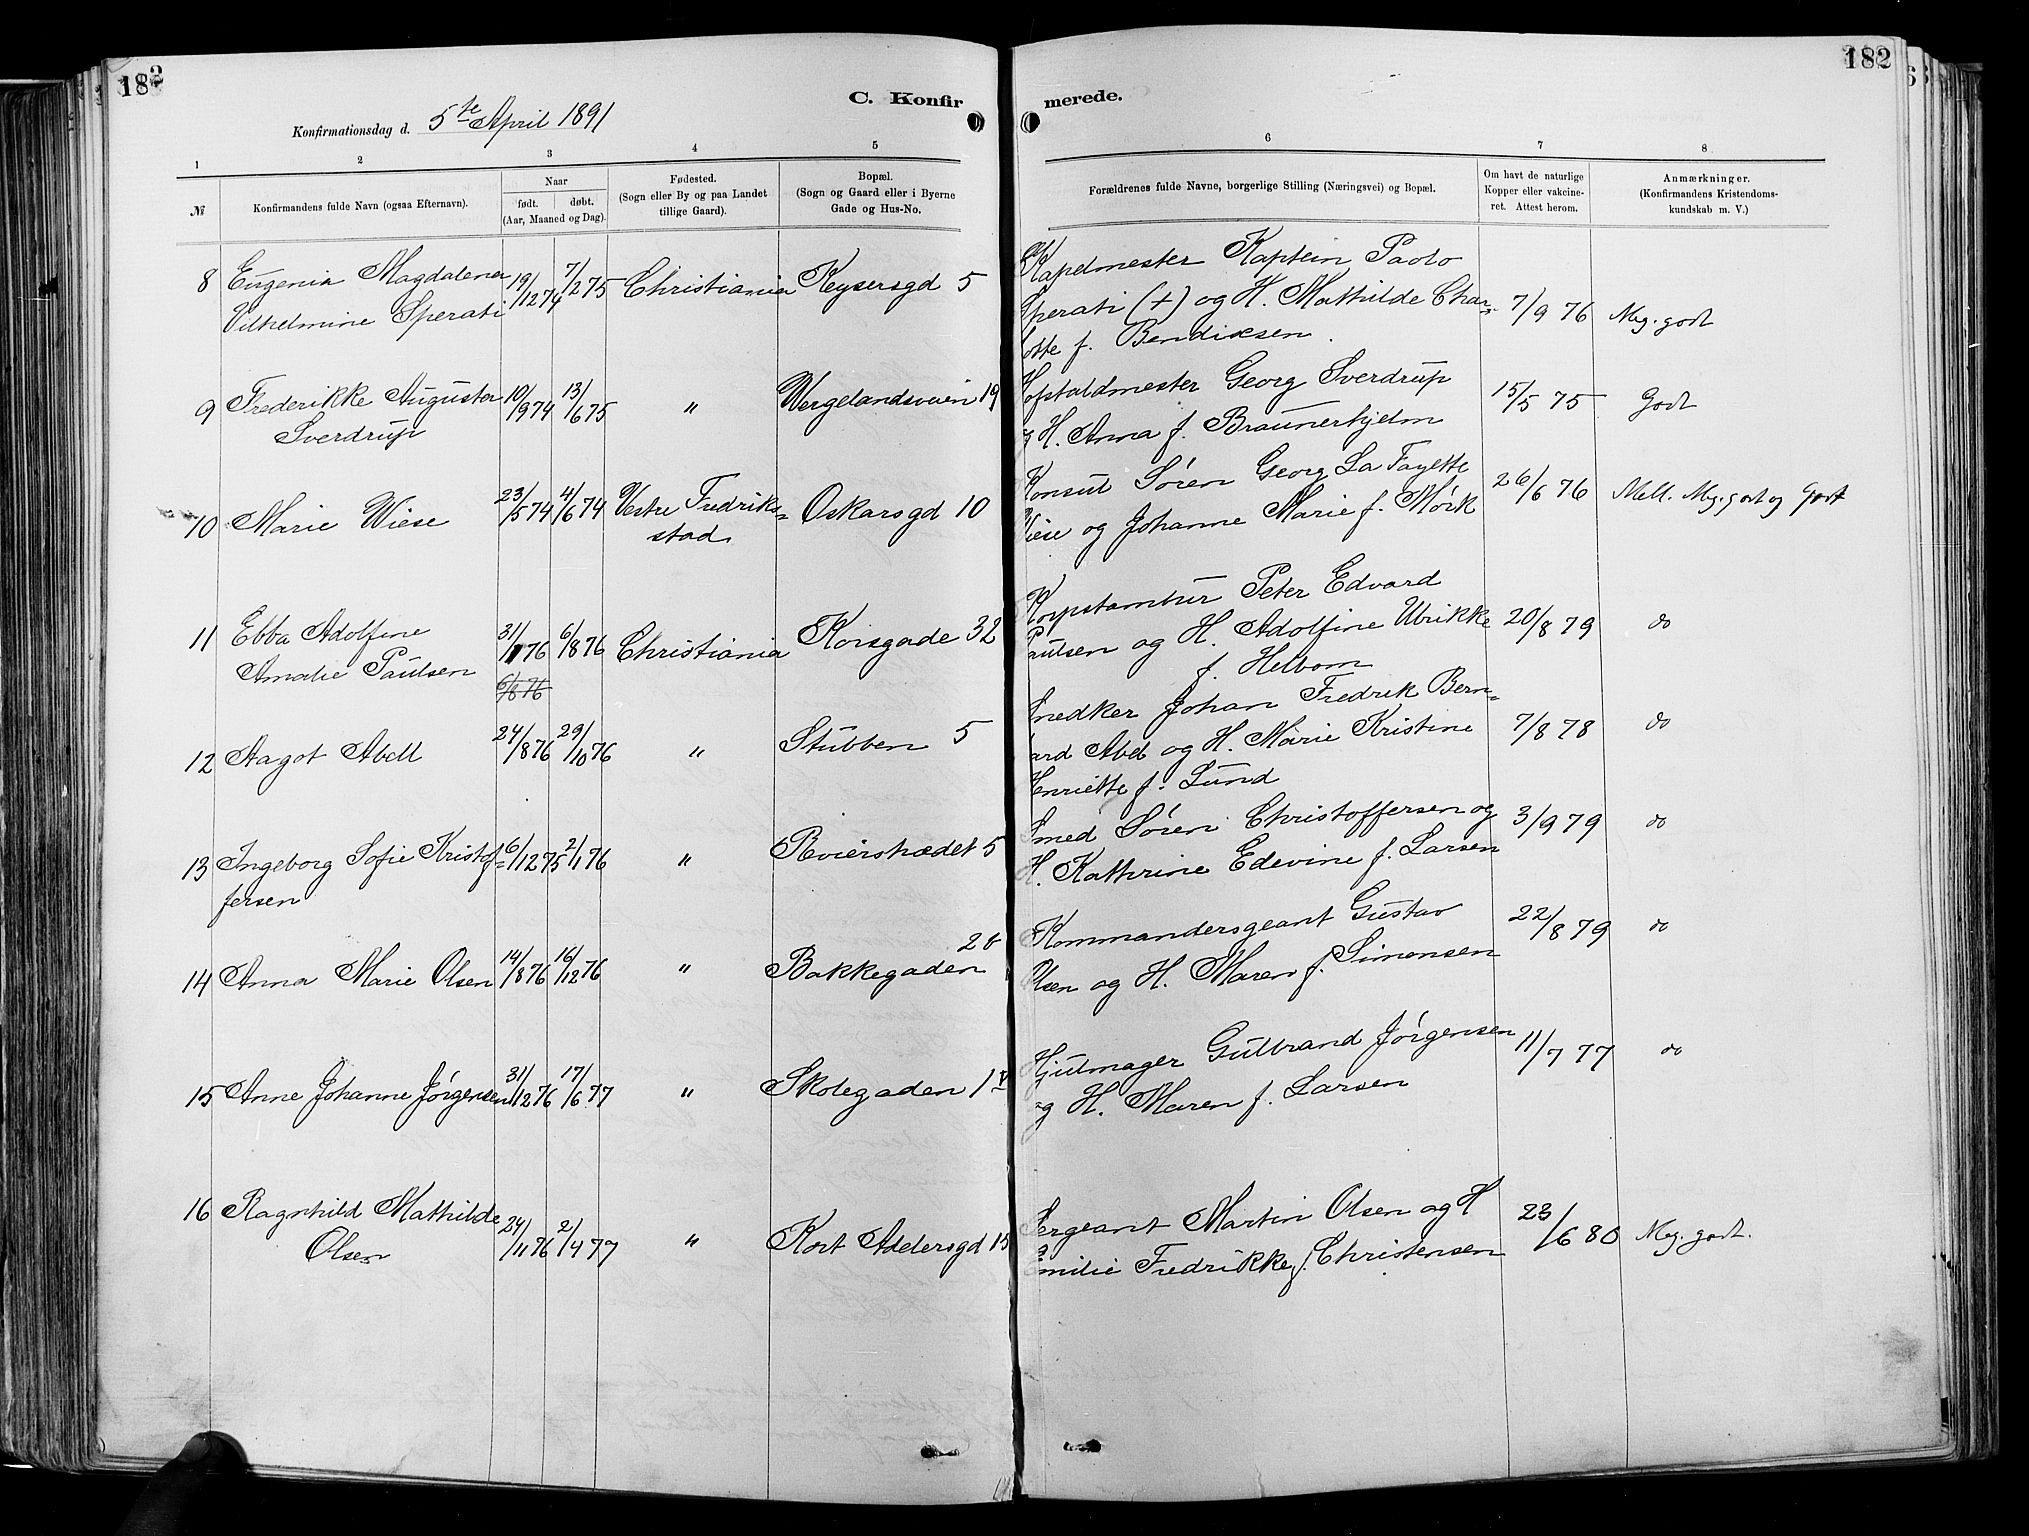 182
182
C. Konfir
merede.
Konfirmationsdag d. 5te April 1891
1
2
3
4
5
6
7
8
№
Konfirmandens fulde Navn (ogsaa Efternavn).
Naar
født. døbt.
(Aar, Maaned og Dag).
Fødested.
(Sogn eller By og paa Landet
tillige Gaard).
Bopæl.
(Sogn og Gaard eller i Byerne
Gade og Hus-No.
Forældrenes fulde Navne, borgerlige Stilling (Næringsvei) og Bopæl.
Om havt de naturlige
Kopper eller vakcine-
ret. Attest herom.
Anmærkninger.
(Konfirmandens Kristendoms-
kundskab m. V.)
8 Eugenia Magdalena
Vilhelmine Sperati
19/12 74 7/2 75 Christiania Keysersgd 5
Kapelmester Kaptein Paolo
Sperati (+) og H. Mathilde Char-
lotte f. Bendixsen.
7/9 76 Meg. godt
9 Frederikke Augusta
Sverdrup
10/9 74 13/6 75 " Wergelandsveien 19
Hofstaldmester Georg Sverdrup
og H. Anna f. Braunerhjelm
15/5 75 Godt
10 Marie Wiese 23/5 74 4/6 74 Vestre Fredriks=
stad
Oskarsgd 10
Konsul Søren Georg La Fayette
Wiese og Johanne Marie f. Mørk
26/6 76 Mell. Meg. godt og Godt
11 Ebba Adolfine
Amalie Paulsen
31/1 76 6/8 76 Christiania Korsgade 32
6/8 76
Korpstambur Peter Edvard
Paulsen og H. Adolfine Ulrikke
f. Helbom
20/8 79 do
12 Aagot Abell 24/8 76 29/10 76 " Stubben 5
Snedker Johan Fredrik Bern=
hard Abel og H. Marie Kristine
Henriette f. Lund
7/8 78 do
13 Ingeborg Sofie Kristof=
fersen
6/12 75 2/1 76 " Revierstrædet 5
Smed Søren Christoffersen og
H. Kathrine Edevine f. Larsen
3/9 79 do
14 Anna Marie Olsen 14/8 76 16/12 76 " Bakkegaden
Kommandersgeant Gustav
Olsen og H. Maren f. Simensen
22/8 79 do
15 Anne Johanne Jørgensen 31/12 76 17/6 77 " Skolegaden
Hjulmager Gulbrand Jørgensen
og H. Maren f. Larsen
11/7 77 do
16 Ragnhild Mathilde
Olsen
24/11 76 2/4 77 " Kort Adelersgd 15
Sergeant Martin Olsen og H
Emilie Fredrikke f. Christensen
23/6 80 Meg. godt.